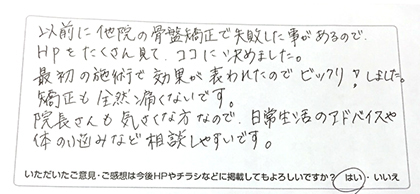 以前に他院の骨盤矯正で失敗した事があるので、
HPをたくさん見て、ココに決めました。
最初の施術で効果が表われたのでビックリ!しました。
矯正も全然痛くないです。
院長さんも気さくな方なので、日常生活のアドバイスや
体の悩みなど相談しやすいです。
いただいたご意見・ご感想は今後HPやチラシなどに掲載してもよろしいですか? はい・いいえ